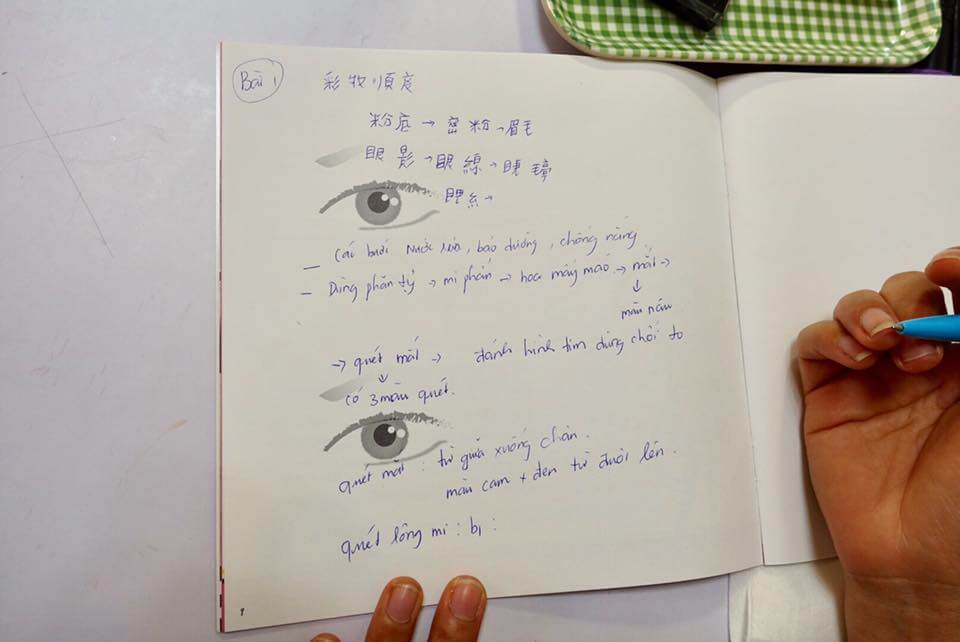 Bài 1
彩妝順序
粉底 → 密粉 → 眉毛
眼影 → 眼線 → 睫毛膏
→
— Các bước nước , bảo dưỡng, chống nắng
— Dùng phấn tỷ → mi phấn → hoa mày → mắt →
↓
màu nâu
→ quét mắt → đánh hình tim dùng chổi to
↓
có 3 màu quét.
quét mắt : từ giữa xuống chân.
màu cam + đen từ đuôi lên.
quét lông mi : b1 :